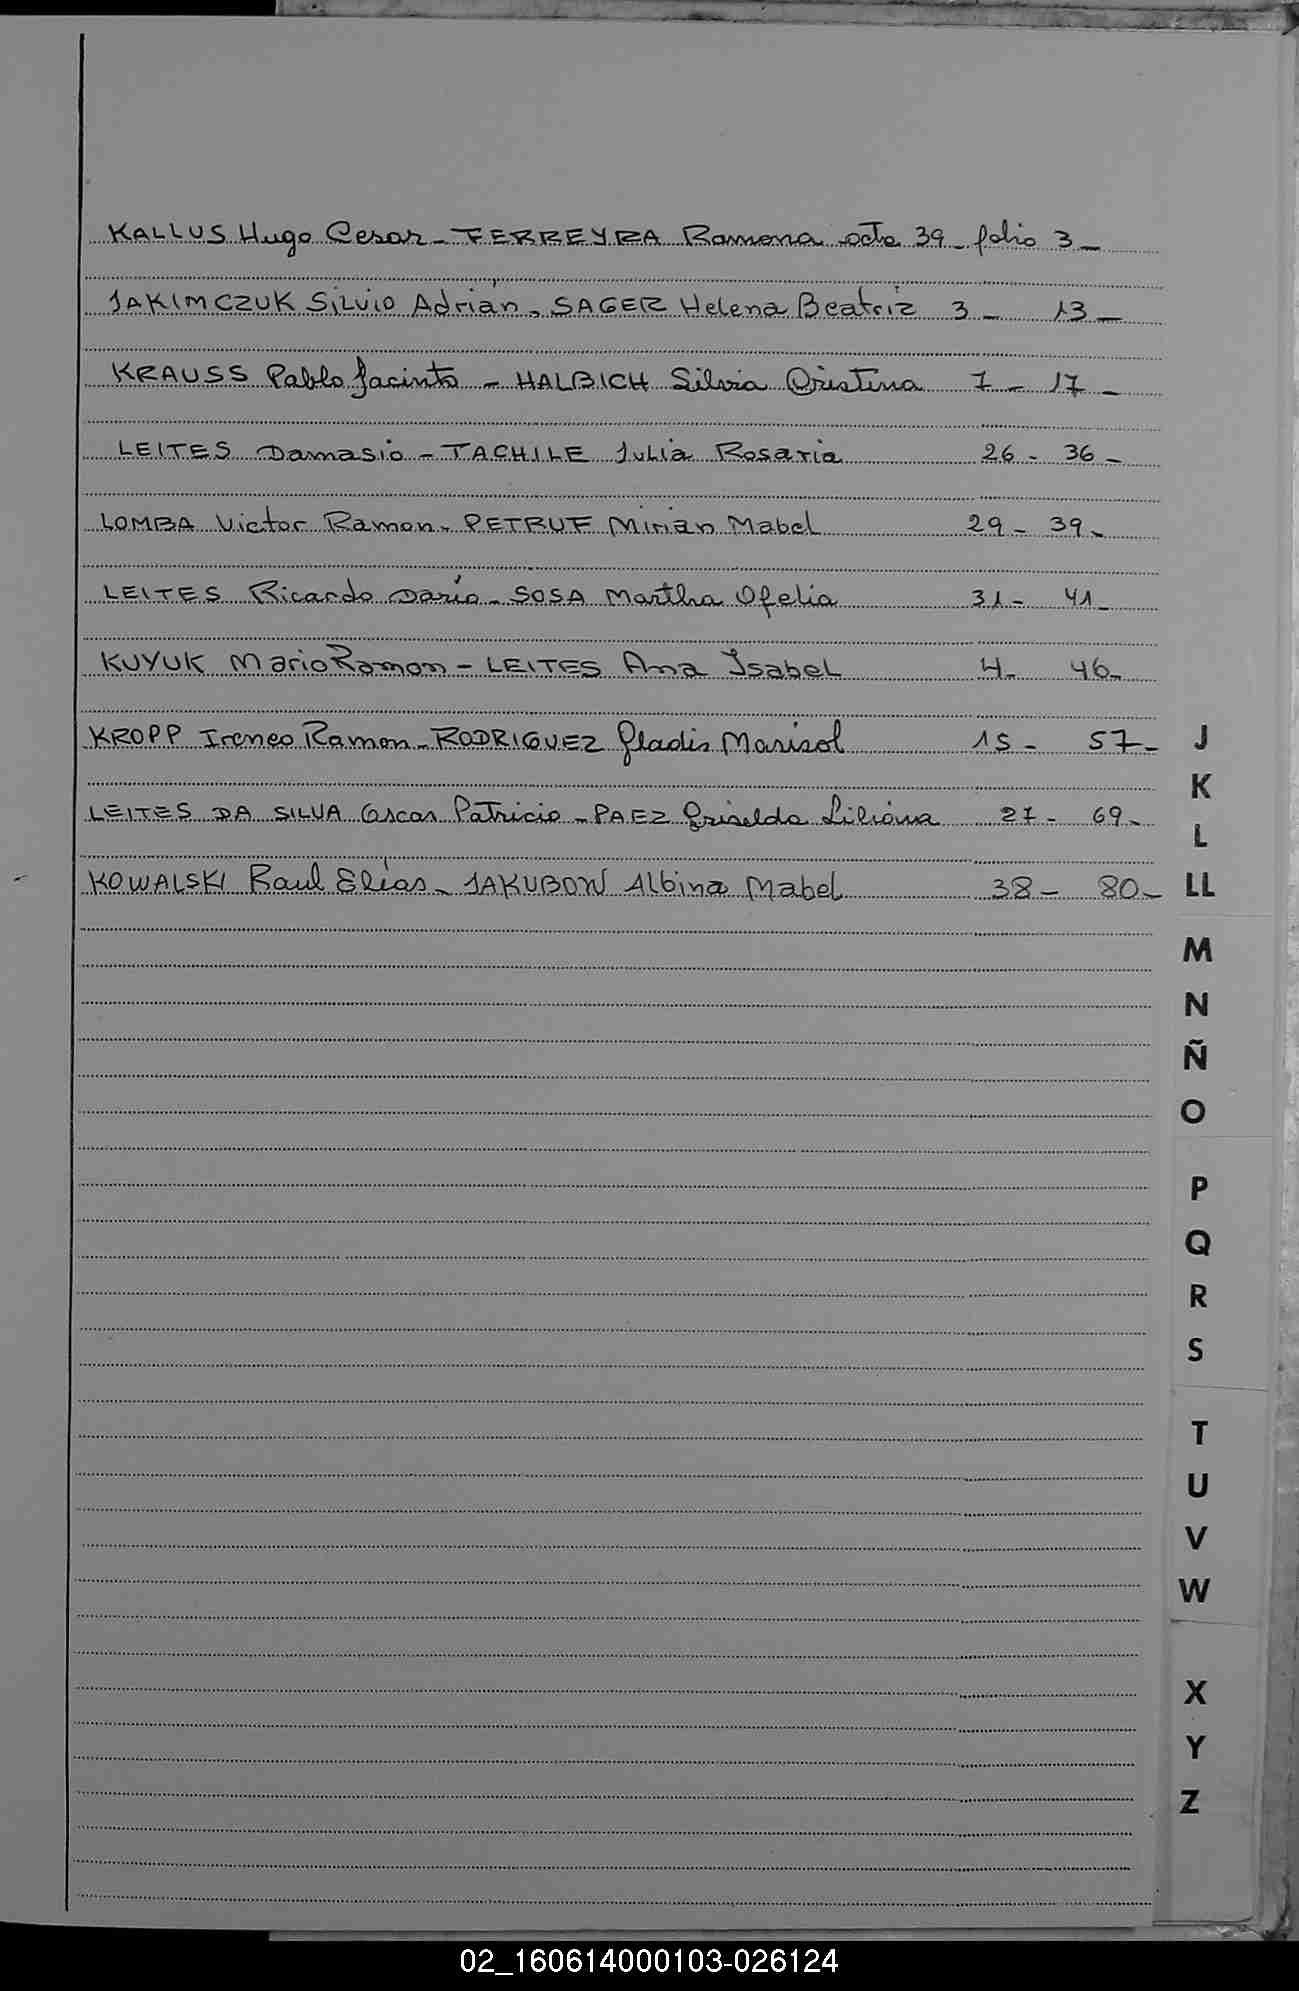 KALLUS Hugo Cesar - FERREYRA Ramona acta 39 - folio 3 -
JAKIMCZUK Silvio Adrián - SAGER Helena Beatriz 3 - 13 -
KRAUSS Pablo Jacinto - HALBICH Silvia Cristina 7 - 17 -
LEITES Damasio - TACHILE Julia Rosaria 26 - 36 -
LOMBA Victor Ramon - PETRUF Mirian Mabel 29 - 39 -
LEITES Ricardo Darío - SOSA Martha Ofelia 31 - 41 -
KUYUK Mario Ramon - LEITES Ana Isabel 4 - 46 -
KROPP Ireneo Ramon - RODRIGUEZ Gladis Marisol 15 - 57 -
LEITES DA SILVA Oscar Patricio - PAEZ Griselda Liliana 27 - 69 -
KOWALSKI Raul Elías - JAKUBOW Albina Mabel 38 - 80 -
J
K
L
LL
M
N
Ñ
O
P
Q
R
S
T
U
V
W
X
Y
Z
02_160614000103-026124